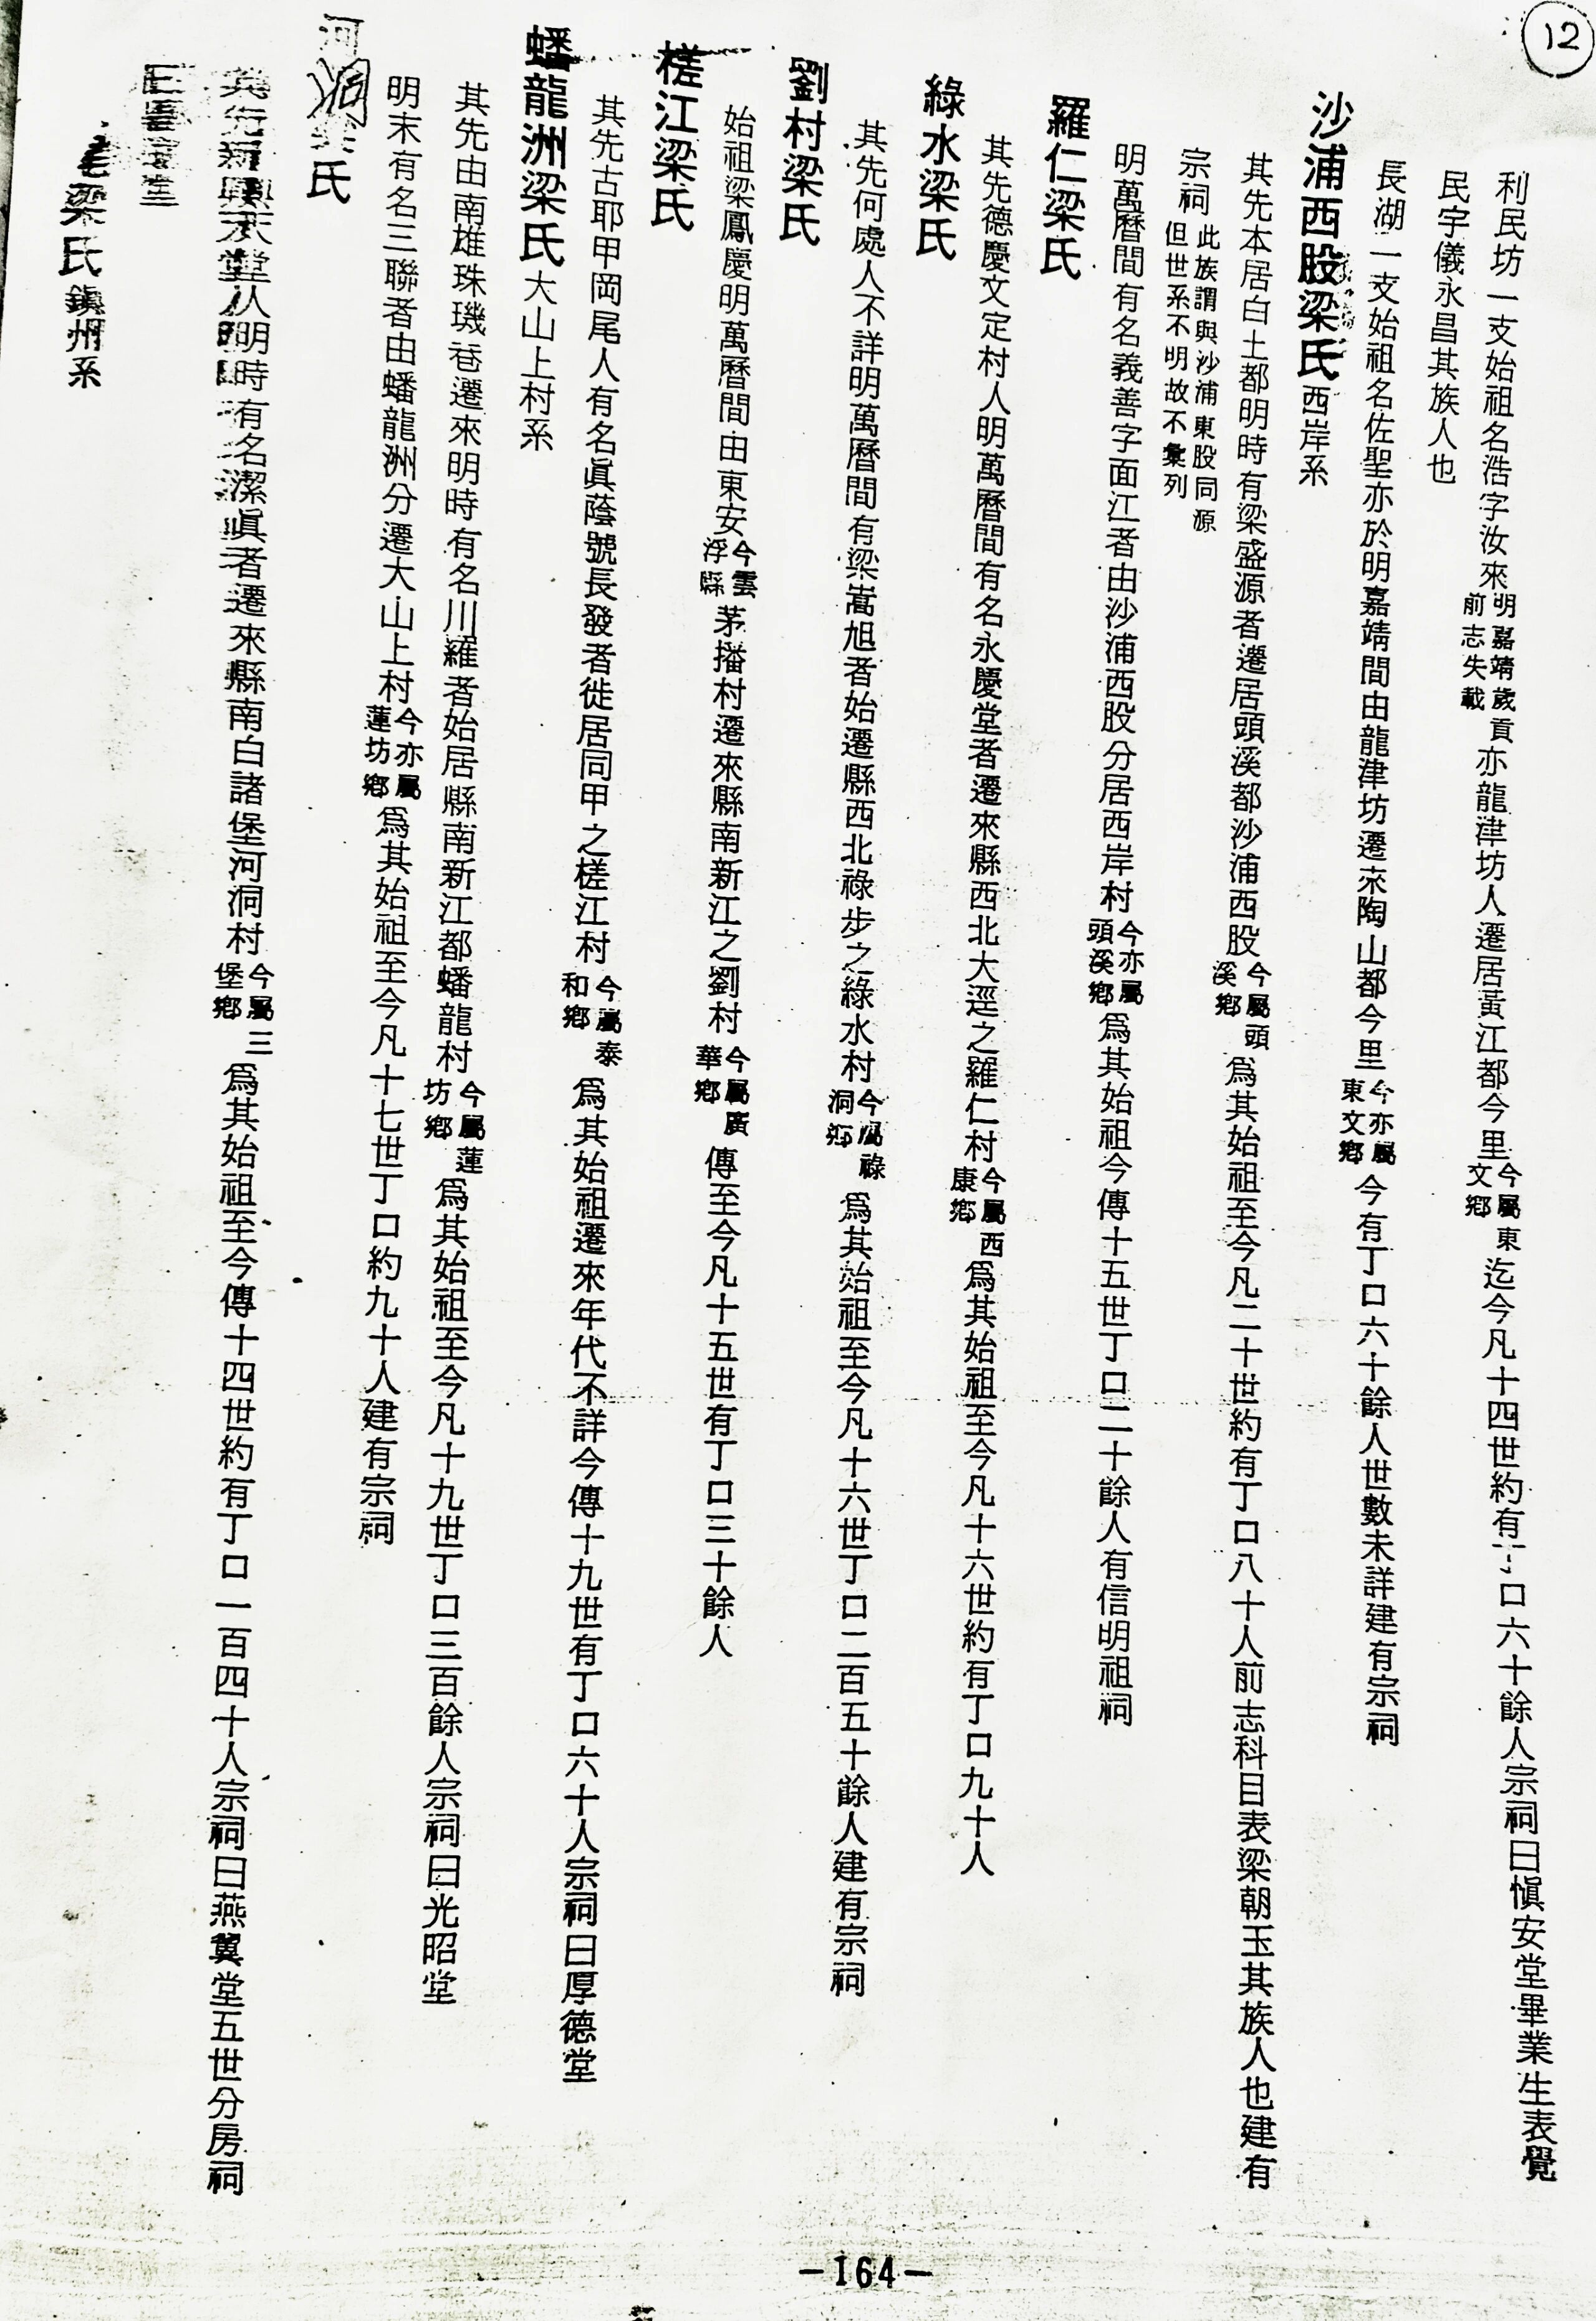 12
利民坊一支始祖名浩字汝來明嘉靖歲貢前志失載亦龍津坊人遷居黃江都今里今屬東文鄉迄今凡十四世約有丁口六十餘人宗祠曰愼安堂畢業生表覺
民字儀永昌其族人也
長湖一支始祖名佐聖亦於明嘉靖間由龍津坊遷來陶山都今里今亦屬東文鄉今有丁口六十餘人世數未詳建有宗祠
沙浦西股梁氏西岸系
其先本居白土都明時有梁盛源者遷居頭溪都沙浦西股今屬頭溪鄉爲其始祖至今凡二十世約有丁口八十人前志科目表梁朝玉其族人也建有
宗祠此族謂與沙浦東股同源但世系不明故不彙列
明萬曆間有名義善字面江者由沙浦西股分居西岸村今亦屬頭溪鄉爲其始祖今傳十五世丁口二十餘人有信明祖祠
羅仁梁氏
其先德慶文定村人明萬曆間有名永慶堂者遷來縣西北大逕之羅仁村今屬西康鄉爲其始祖至今凡十六世約有丁口九十人
綠水梁氏
其先何處人不詳明萬曆間有梁嵩旭者始遷縣西北祿步之綠水村今屬祿洞鄉爲其始祖至今凡十六世丁口二百五十餘人建有宗祠
劉村梁氏
始祖梁鳳慶明萬曆間由東安今雲浮縣茅㙮村遷來縣南新江之劉村今屬廣華鄉傳至今凡十五世有丁口三十餘人
槎江梁氏
其先古耶甲岡尾人有名眞蔭號長發者徙居同甲之槎江村今屬泰和鄉爲其始祖遷來年代不詳今傳十九世有丁口六十人宗祠曰厚德堂
蟠龍洲梁氏大山上村系
其先由南雄珠璣巷遷來明時有名川羅者始居縣南新江都蟠龍村今屬蓮坊鄉爲其始祖至今凡十九世丁口三百餘人宗祠曰光昭堂
明末有名三聯者由蟠龍洲分遷大山上村今亦屬蓮坊鄉爲其始祖至今凡十七世丁口約九十人建有宗祠
河洞梁氏
其先新興天堂人明時有名潔眞者遷來縣南白諸堡河洞村今屬三堡鄉爲其始祖至今傳十四世約有丁口一百四十人宗祠曰燕翼堂五世分房祠
曰 堂
梁氏鎭州系
-164-